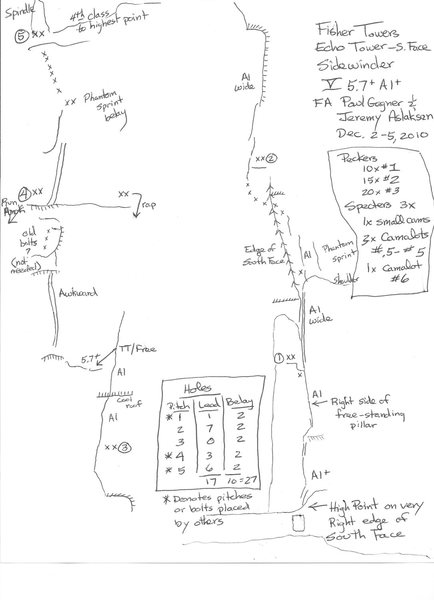 Spindle
5 xx
4th class
to highest point
xx Phantom
sprint
belay
4 xx
xx
rap
old
bolts
?
(not
needed)
Awkward
5.7+
TT/Free
A1
Cool
roof
A1
xx 3
A1
wide
xx 2
Edge of
South Face
A1
Phantom
sprint
Shoulder
A1
wide
1 xx
x
A1
Right side of
free-standing
pillar
A1+
High Point on very
Right edge of
South Face
Fisher Towers
Echo Tower - S. Face
Sidewinder
V 5.7+ A1+
FA Paul Gagner &
Jeremy Aslaksen
Dec. 2-5, 2010
Peckers
10x #1
15x #2
20x #3
Specters 3x
1x small cams
3x Camalots
#.5 - #5
1x Camalot
#6
Holes
Pitch Lead Belay
* 1 1 2
2 7 2
3 0 2
* 4 3 2
* 5 6 2
17 10 = 27
* Denotes pitches
or bolts placed
by others